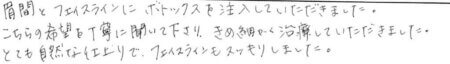 眉間とフェイスラインにボトックスを注入していただきました。
こちらの希望を丁寧に聞いて下さり、きめ細かく治療していただきました。
とても自然な仕上りで、フェイスラインもスッキリしました。